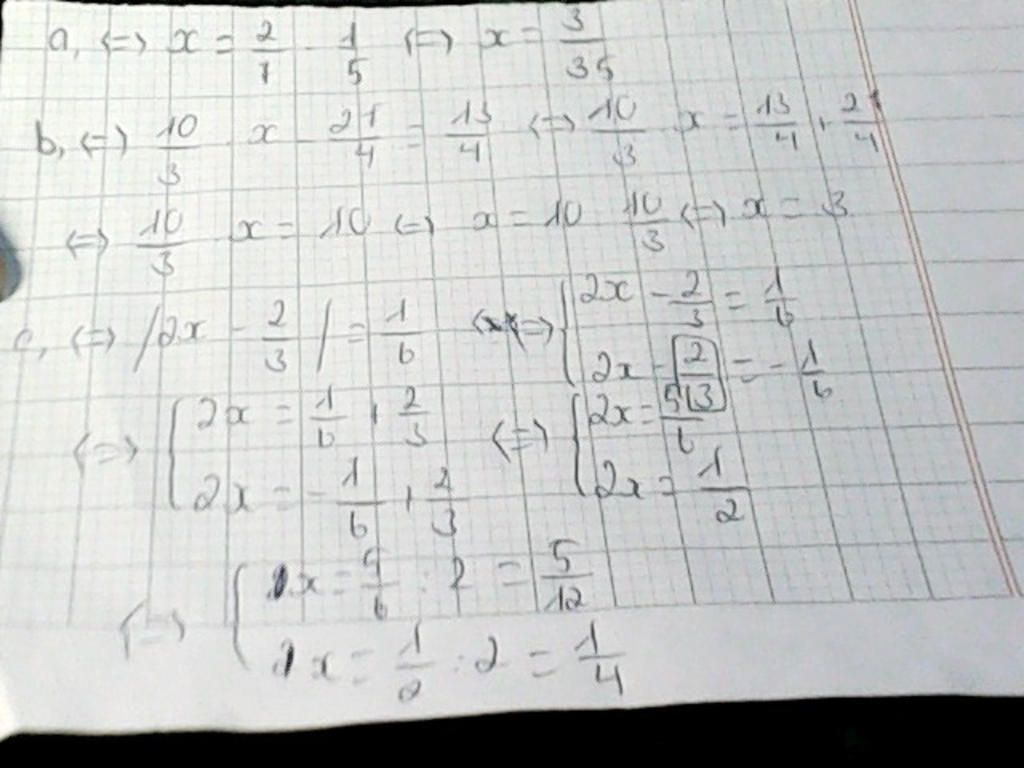 a, <=> x = 2/7 - 1/5 <=> x = 3/35
b, <=> 10/3 x - 21/4 = 13/4 <=> 10/3 x = 13/4 + 2/4
<=> 10/3 x = 10 <=> x = 10 10/3 <=> x = 3
c, <=> /2x - 2/3 / = 1/6 <=> { 2x - 2/3 = 1/6
2x - 2/3 = - 1/6
<=> { 2x = 1/6 + 2/3 <=> { 2x = 5/6
2x = - 1/6 + 2/3 2x = 1/2
<=> { x = 5/6 : 2 = 5/12
x = 1/2 : 2 = 1/4